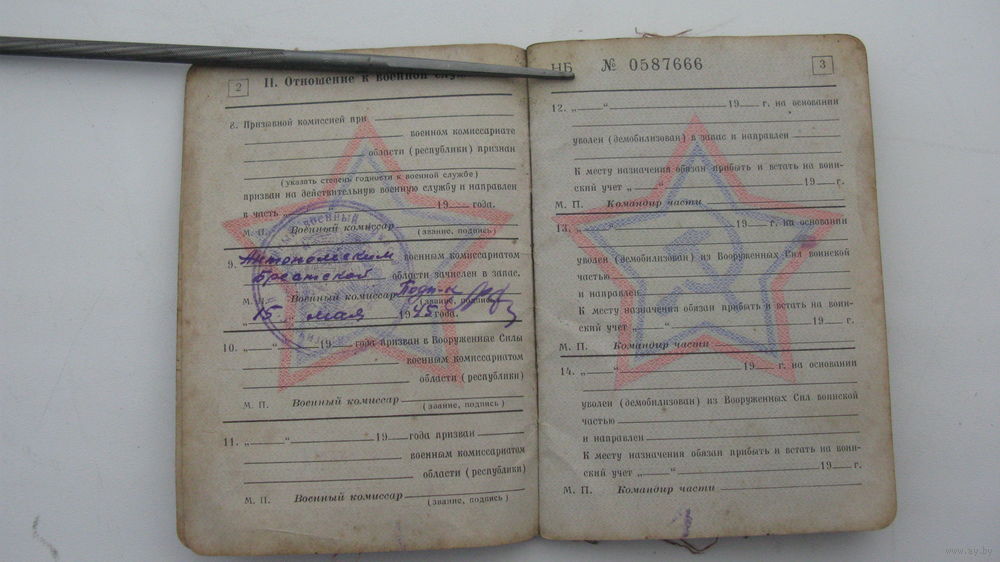 2
II. Отношение к военной
8. Призывной комиссией при
военном комиссариате
области (республики) признан
(указать степень годности к военной службе)
призван на действительную военную службу и направлен
в часть „ “ 19 года.
М. П. Военный комиссар
(звание, подпись)
9. Антопольским военным комиссариатом
Брестской области зачислен в запас.
М. П. Военный комиссар Подп-к
(звание, подпись)
„15 “ мая 1945 года.
10. „ “ 19 года призван в Вооруженные Силы
военным комиссариатом
области (республики)
М. П. Военный комиссар
(звание, подпись)
11. „ “ 19 года призван
военным комиссариатом
области (республики)
М. П. Военный комиссар
(звание, подпись)
НБ № 0587666
3
12. „ “ 19 г. на основании
уволен (демобилизован) в запас и направлен
К месту назначения обязан прибыть и встать на воин-
ский учет „ “ 19 г.
М. П. Командир части
13. „ “ 19 г. на основании
уволен (демобилизован) из Вооруженных Сил воинской
частью
и направлен
К месту назначения обязан прибыть и встать на воин-
ский учет „ “ 19 г.
М. П. Командир части
14. „ “ 19 г. на основании
уволен (демобилизован) из Вооруженных Сил воинской
частью
и направлен
К месту назначения обязан прибыть и встать на воин-
ский учет „ “ 19 г.
М. П. Командир части
www.ay.by